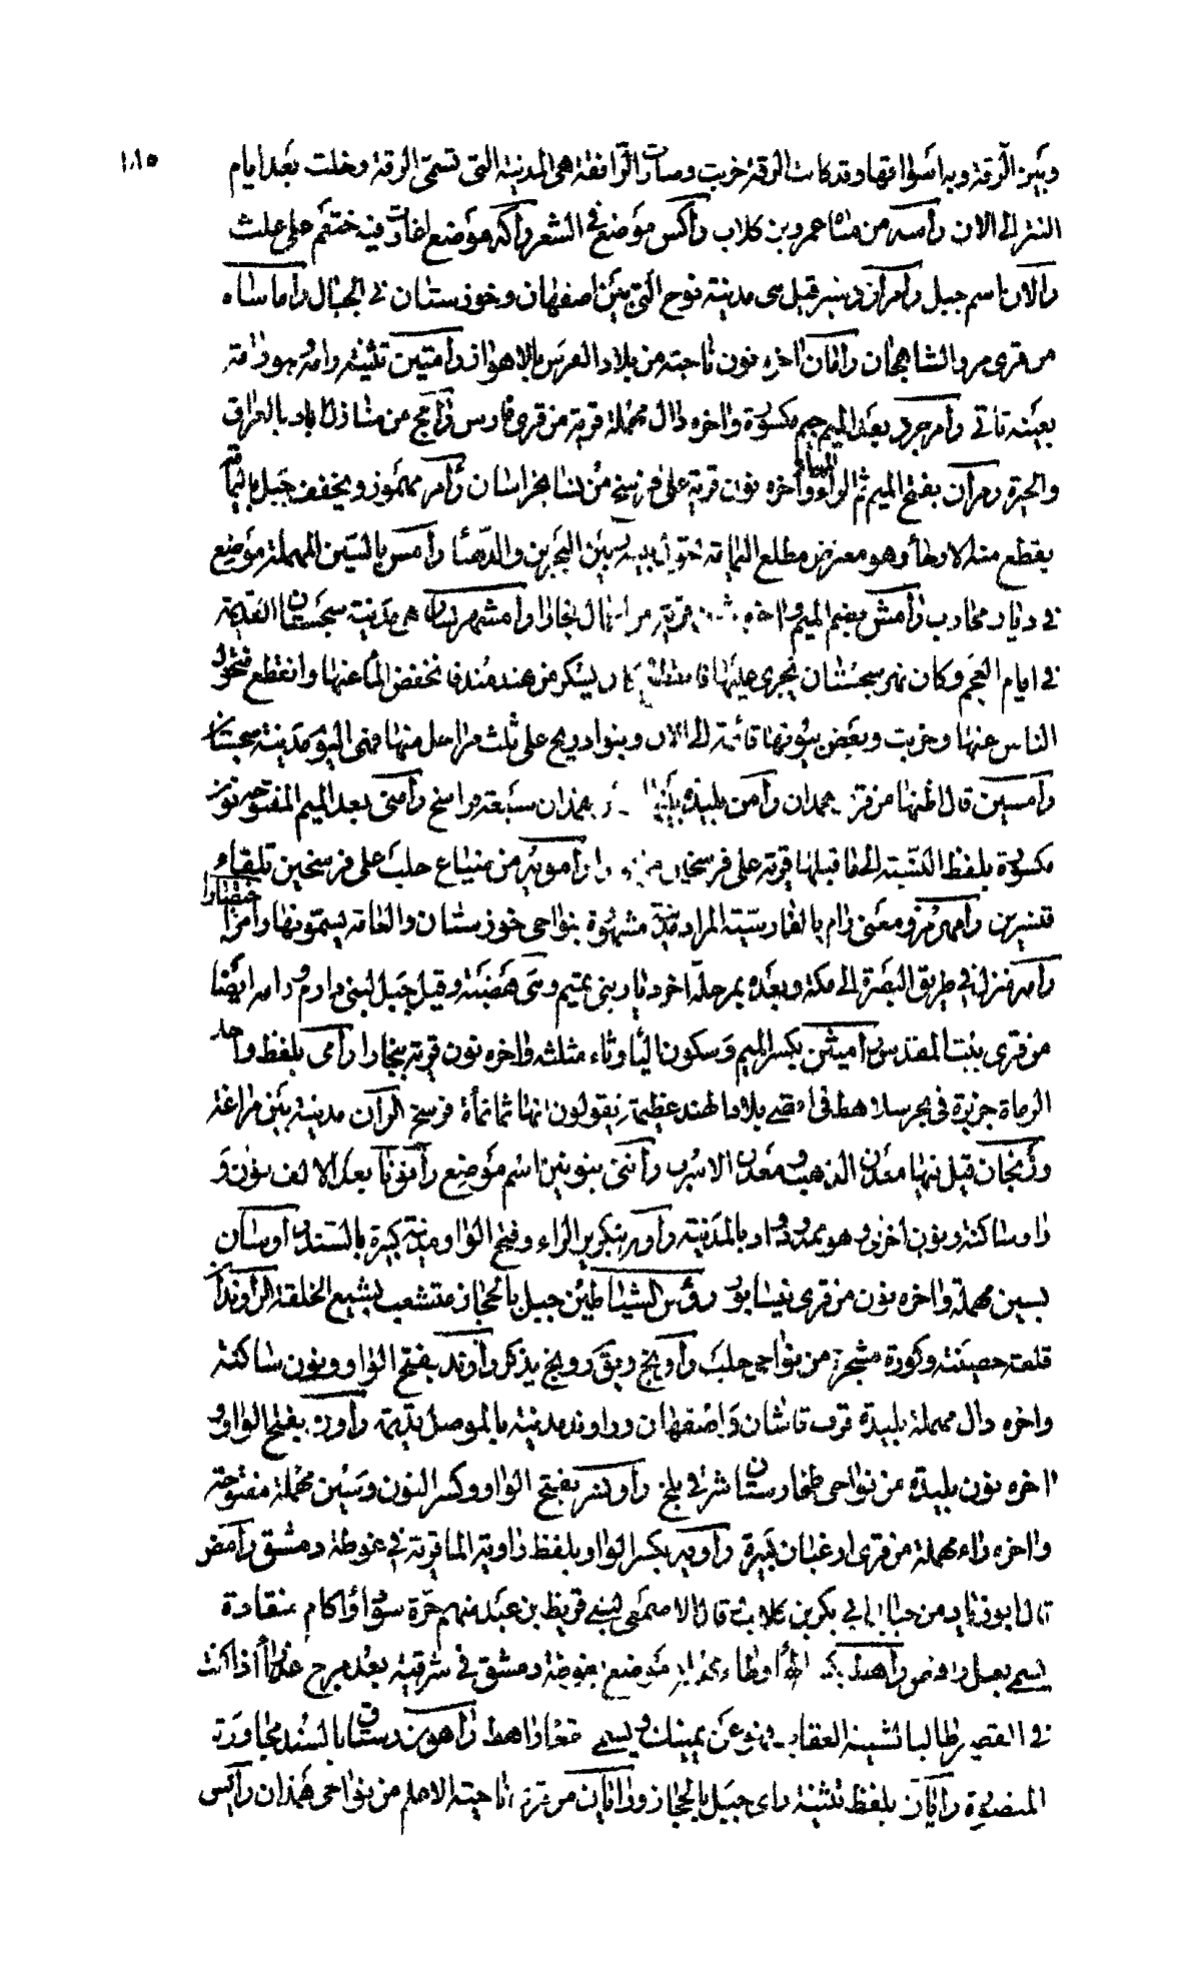 ١٠٨٥
وبين الرقة وبه اسواقها وقد كانت الرقة خربت وصارت الرافقة هي المدينة التي تسمى الرقة وخلت بعد ايام
التتر الى الان راسه من مياه عمرو بن كلاب راكس موضع في الشعر راكه موضع اغارت فيه خثعم على علث
رالان اسم جبل رامراز قيل هي مدينة نوح التي بين اصفهان وخوزستان في الجبال راماشاه
من قرى مرو الشاهجان رامان اخره نون ناحية من بلاد الفرس بالاهواز رامتين تثنية رامه
بعينه تأتي رامجرد بعد الميم جيم مكسورة واخره دال مهملة قرية من قرى فارس رامح من منازل اياد بالعراق
والحيرة رامران بفتح الميم ثم الراء واخره نون قرية على فرسخ من نسا بخراسان رامر مهموز ويخفف جبل باليمامة
يقطع منه الارحاء وهو معترض مطلع اليمامة يحول بينه وبين البحرين والدهنا رامس بالسين المهملة موضع
في ديار محارب رامش بضم الميم واخره قرية من اعمال بخارا رامشهرستان هي مدينة سجستان القديمة
في ايام العجم وكان نهر سجستان يجري عليها فانقطع سكر من هندمند فانخفض الماء عنها وانقطع فتحول
الناس عنها وخربت وبعض بيوتها قائمة الى الان وبنوا زرنج على ثلث مراحل منها فهي اليوم مدينة سجستان
رامسين قال اظنها من قرى همدان رامن بليدة بينها وبين همذان سبعة فراسخ رامني بعد الميم المفتوحة نون
مكسورة بلفظ النسبة الى ما قبلها قرية على فرسخين من بخارا راموية من ضياع حلب على فرسخين تلقاء
قنسرين رامهرمز ومعنى رام بالفارسية المراد مدينة مشهورة بنواحي خوزستان والعامة يسمونها رامز اختصارا
رامه منزل في طريق البصرة الى مكة وبعده بمرحلة اخر ديار بني تميم وهي هضبة وقيل جبل لبني دارم ورامه ايضا
من قرى بيت المقدس راميثن بكسر الميم وسكون الياء وثاء مثلثه واخره نون قرية ببخارا رامي بلفظ واحد
الرماة جزيرة في بحر سلاهط في اقصى بلاد الهند عظيمة يقولون انها ثمانمأة فرسخ الران مدينة بين مراغة
وزنجان قيل فيها معدن الذهب ومعدن الاسرب رانني بنونين اسم موضع رانوناء بعد الالف نون و
واو ساكنة ونون اخرى وهو ممدود واد بالمدينة راور بتكرير الراء وفتح الواو مدينة كبيرة بالسند راوسان
بسين مهملة واخره نون من قرى نيسابور رؤس الشياطين جبل بالحجاز متشعب بشيع الخلقة الراوندان
قلعة حصينة وكورة مشجرة من نواحي حلب راونج ويق رويج يذكر راوند بفتح الواو ونون ساكنة
واخره دال مهملة بليدة قرب قاشان واصفهان وراوند مدينة بالموصل قديمة راون بفتح الواو و
اخره نون بليدة من نواحي طخارستان شرقي بلخ راونسر بفتح الواو وكسر النون وسين مهملة مفتوحة
واخره راء مهملة من قرى ارغيان كبيرة راويه بكسر الواو بلفظ راوية الماء قرية في غوطة دمشق رامض
قال ابو زياد من جبال ابي بكر بن كلاب قال الاصمعي لبني قريظ بن عبد منهم حرة سوداء واكام منقادة
تسمى راهط بكسر الهاء وطاء مهملة موضع بغوطة دمشق في شرقيه بعد مرج عذرا اذا كنت
في القصير طالبا لثنية العقاب وهو عن يمينك ويسمى راهط راهون رستاق بالسند مجاورة
المنصورة رايان بلفظ تثنية راي جبل بالحجاز ورايان من قرى ناحية الاعلم من نواحي همذان رايس